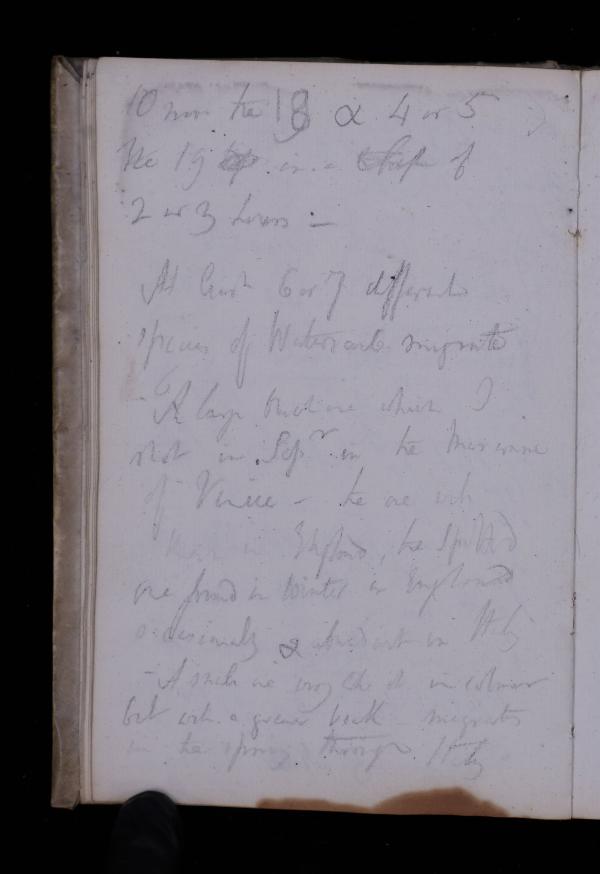 10 more the 18 & 4 or 5
the 19 in a of
2 or 3 hours –
At least 6 or 7 different
species of Waterrails migrate
A large one which I
shot in Sepr in the
of Venice – the one
in England, the Spotted
one found in Winter in England
occasionally & abundant in Italy
– A one in colour
but with a green beak – migrates
in the spring through Italy